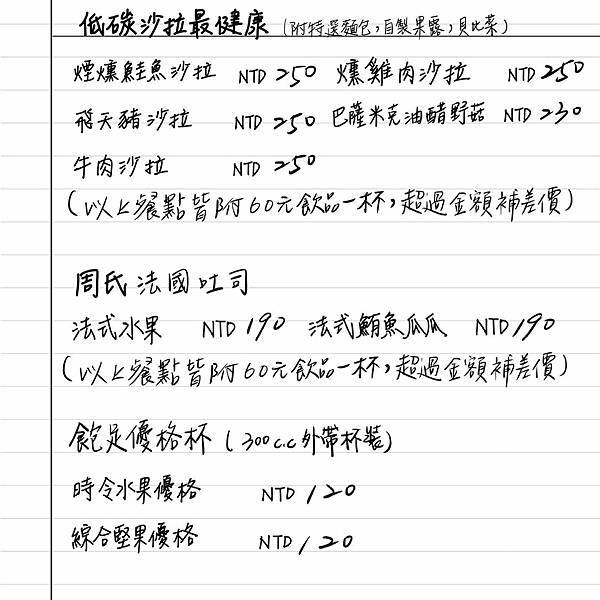 低碳沙拉最健康 (附特選麵包,自製果露,貝比菜)
煙燻鮭魚沙拉 NTD 250 燻雞肉沙拉 NTD 250
飛天豬沙拉 NTD 250 巴薩米克油醋野菇 NTD 230
牛肉沙拉 NTD 250
(以上餐點皆附60元飲品一杯,超過金額補差價)
周氏法國吐司
法式水果 NTD 190 法式鮪魚瓜瓜 NTD 190
(以上餐點皆附60元飲品一杯,超過金額補差價)
飽足優格杯 (300c.c外帶杯裝)
時令水果優格 NTD 120
綜合堅果優格 NTD 120